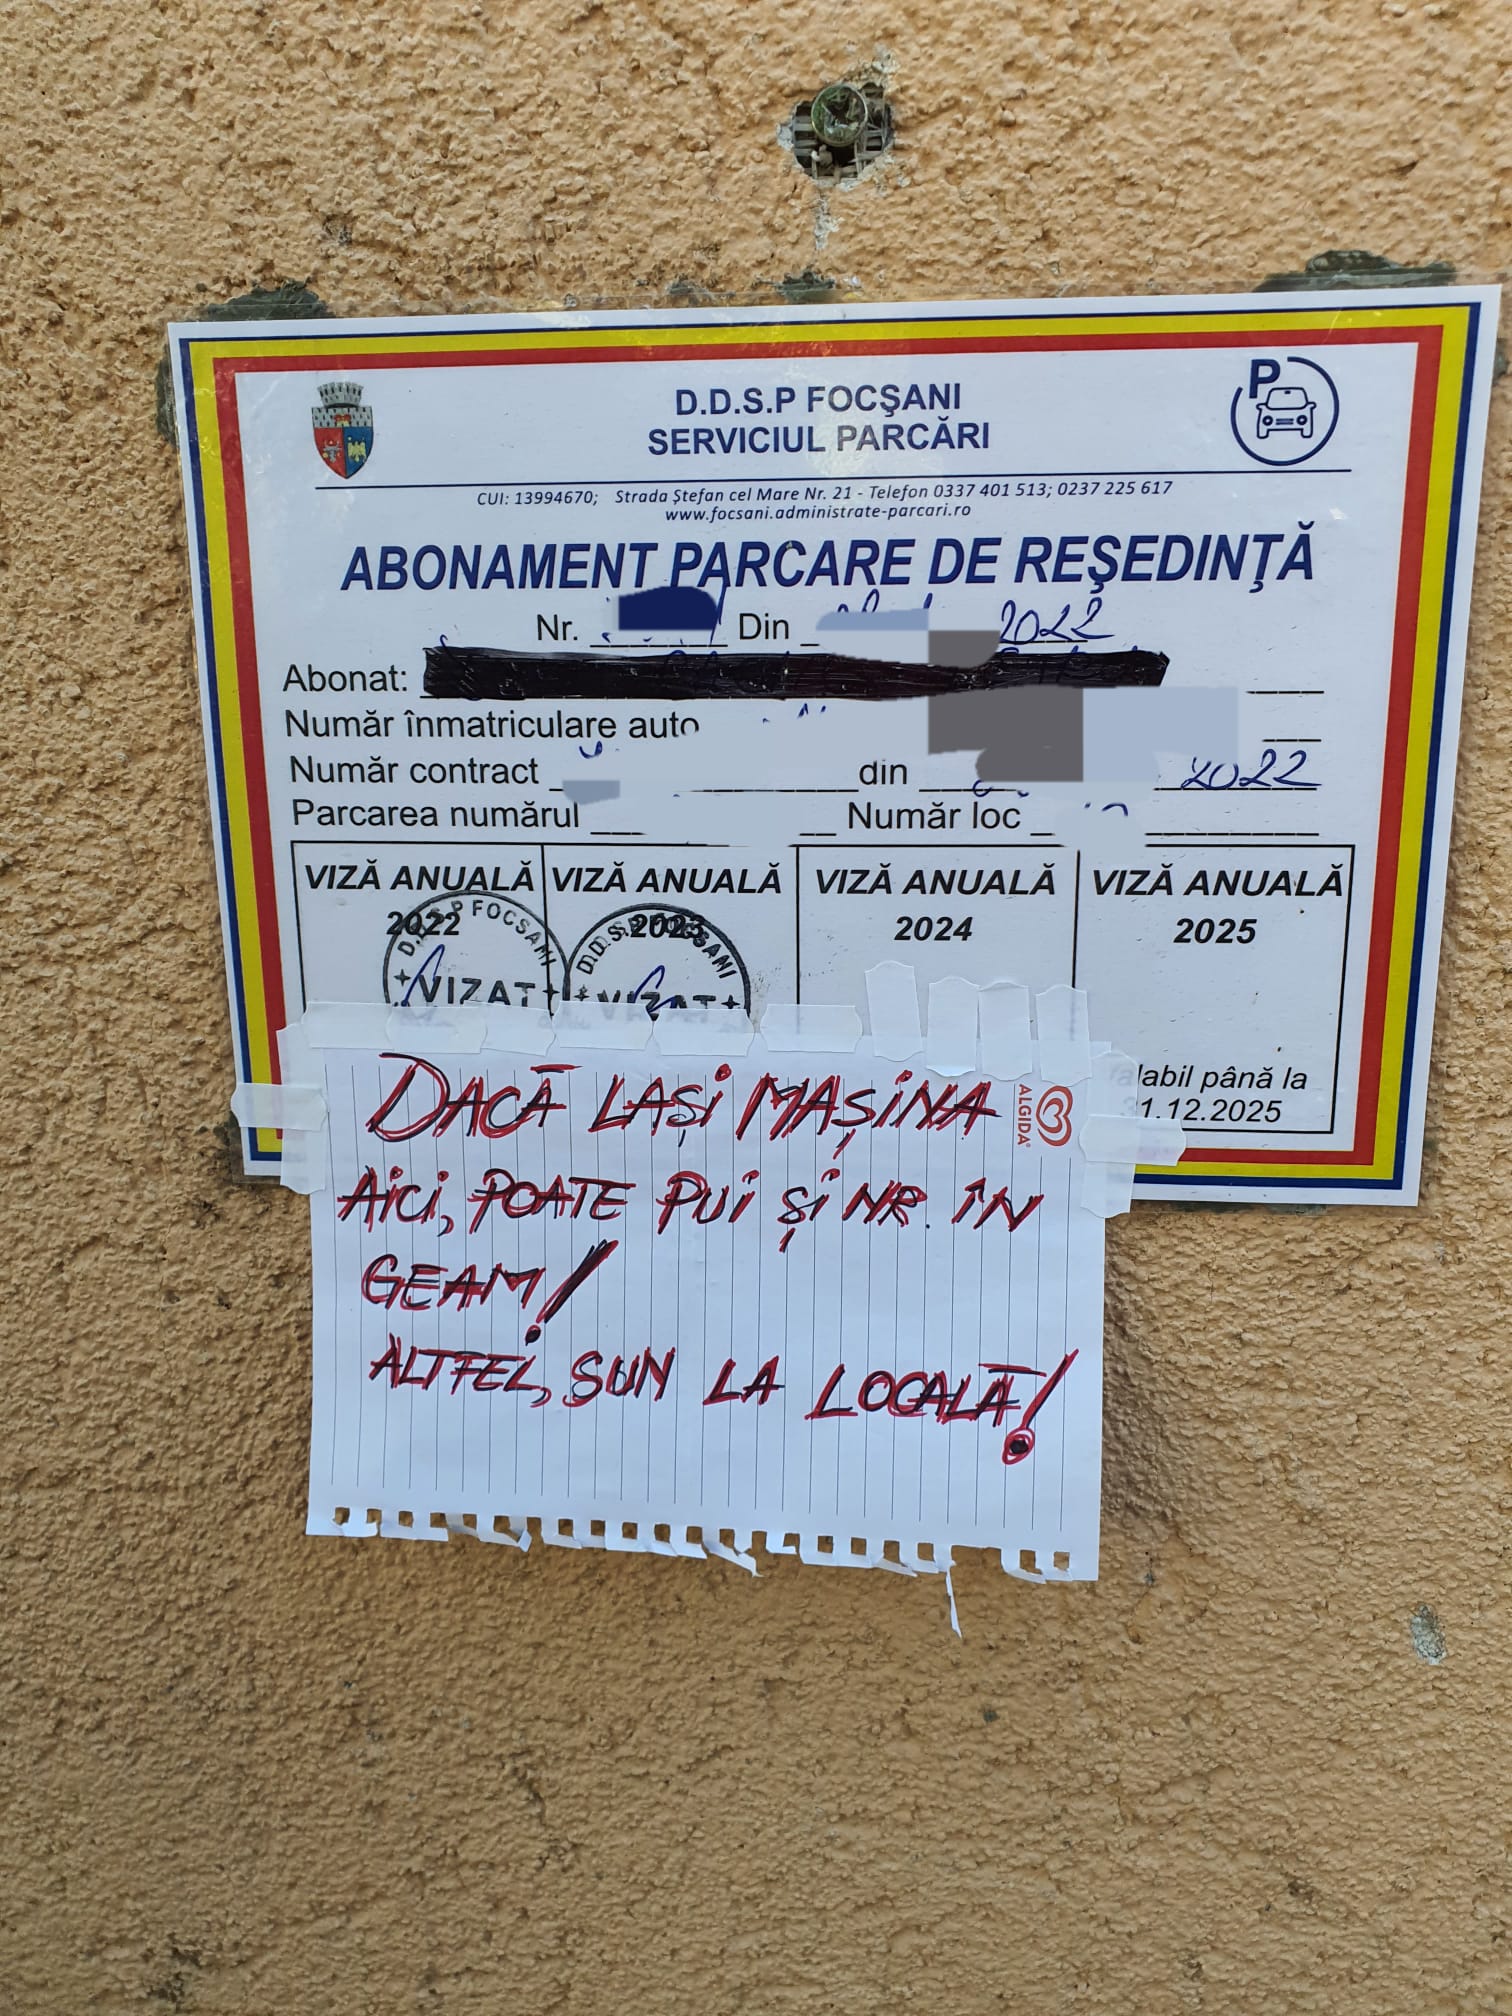 P
D.D.S.P FOCȘANI
SERVICIUL PARCĂRI
CUI: 13994670; Strada Ștefan cel Mare Nr. 21 - Telefon 0337 401 513; 0237 225 617
www.focsani.administrate-parcari.ro
ABONAMENT PARCARE DE REȘEDINȚĂ
Nr. Din 2022
Abonat:
Număr înmatriculare auto
Număr contract din 2022
Parcarea numărul Număr loc
VIZĂ ANUALĂ VIZĂ ANUALĂ VIZĂ ANUALĂ VIZĂ ANUALĂ
2022 2023 2024 2025
D.D.S.P FOCSANI D.D.S.P FOCSANI
VIZAT VIZAT
alabil până la
31.12.2025
ALGIDA
DACĂ LAȘI MAȘINA
AICI, POATE PUI ȘI NR. ÎN
GEAM!
ALTFEL, SUN LA LOCALĂ!